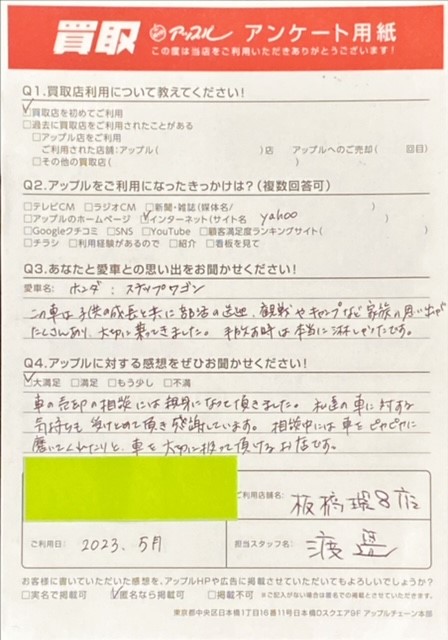 買取 アップル アンケート用紙
この度は当店をご利用いただきありがとうございます!
Q1.買取店利用について教えてください!
☑買取店を初めてご利用
□過去に買取店をご利用されたことがある
□アップル店をご利用
ご利用された店舗:アップル( )店 アップルへのご売却( 回目)
□その他の買取店( )
Q2.アップルをご利用になったきっかけは?(複数回答可)
□テレビCM □ラジオCM □新聞・雑誌(媒体名/ )
□アップルのホームページ ☑インターネット(サイト名 yahoo )
□Googleクチコミ □SNS □YouTube □顧客満足度ランキングサイト( )
□チラシ □利用経験があるので □紹介 □看板を見て
Q3.あなたと愛車との思い出をお聞かせください!
愛車名: ホンダ:ステップワゴン
この車は子供の成長と共に部活の送迎、観戦やキャンプなど家族の思い出が
たくさんあり、大切に乗ってきました。手放す時は本当に淋しかったです。
Q4.アップルに対する感想をぜひお聞かせください!
☑大満足 □満足 □もう少し □不満
車の売却の相談には親身になって頂きました。私達の車に対する
気持ちも受けとめて頂き感謝しています。相談中には車をピカピカに
磨いてくれたりと、車を大切に扱って頂けるお店です。
ご利用店舗名: 板橋環8店
ご利用日: 2023.5月 担当スタッフ名: 渡邉
お客様に書いていただいた感想を、アップルHPや広告に掲載させていただいてもよろしいでしょうか?
□実名で掲載可 ☑匿名なら掲載可 □掲載不可 ※ご記入がない場合は匿名での掲載とさせていただきます。
東京都中央区日本橋1丁目16番11号日本橋Dスクエア9F アップルチェーン本部